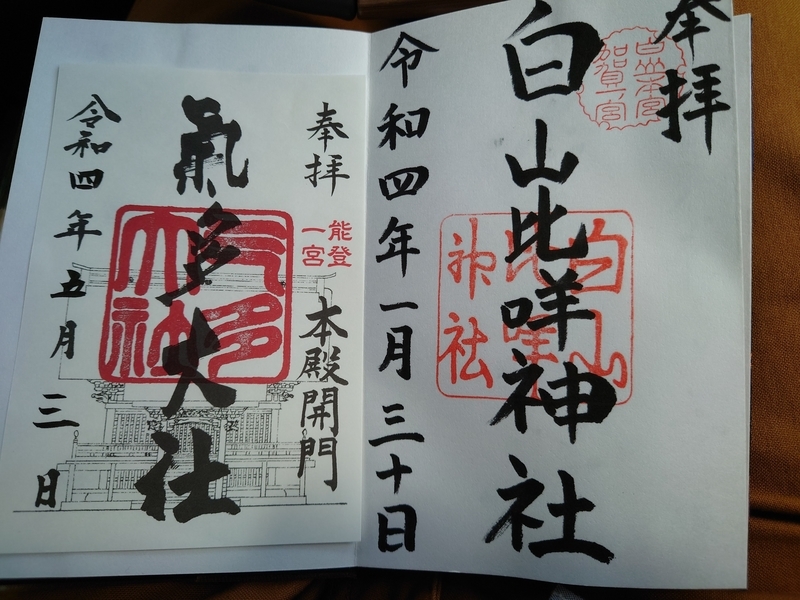 奉拝
白山本宮
加賀一宮
白山比咩神社
白山
比咩
神社
令和四年一月三十日
奉拝
能登
一宮
本殿開門
氣多大社
気多
大社
令和四年五月三日